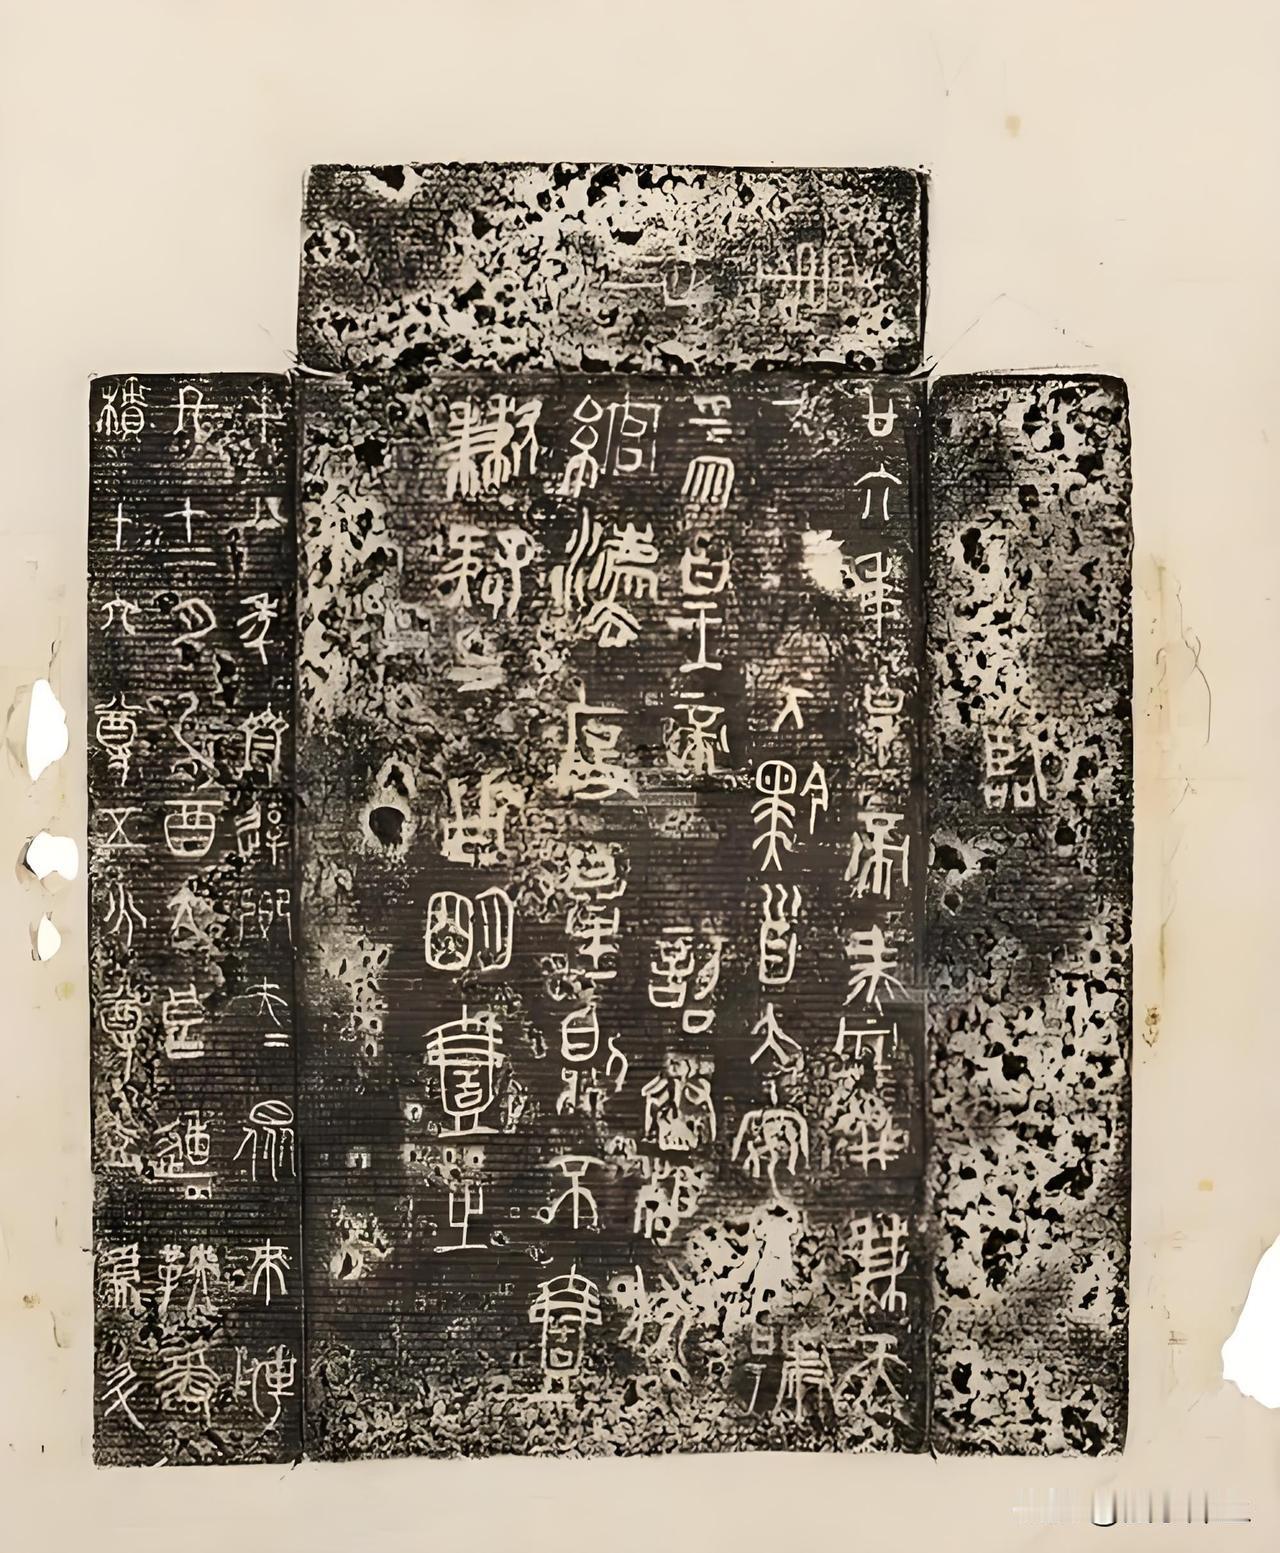 重泉
臨
廿六年皇帝盡并兼天
下諸侯黔首大安立號
為皇帝乃詔丞相狀
綰灋度量則不壹
歉疑者皆明壹之
十八年齊遣卿大夫衆來聘
冬十二月乙酉大良造鞅爰
積十六尊五分尊壹為升